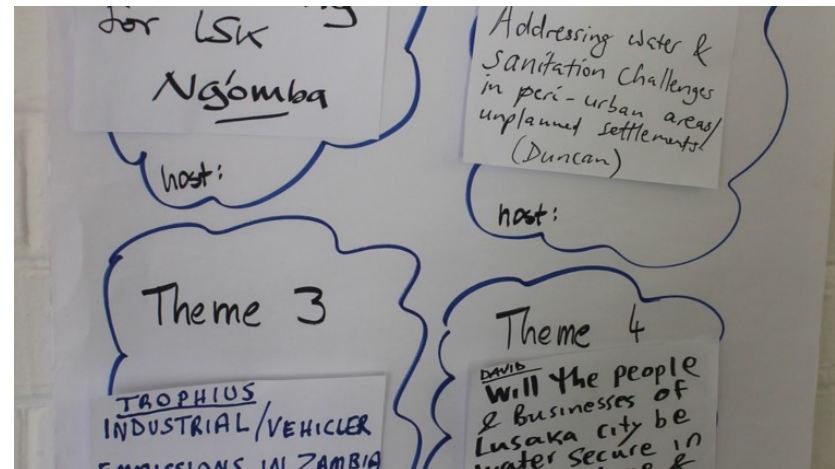 for LSK
Ng'omba
host:
Addressing water &
sanitation challenges
in peri-urban areas/
unplanned settlements
(Duncan)
host:
Theme 3
TROPHIUS
INDUSTRIAL/VEHICLER
EMMISSIONS IN ZAMBIA
Theme 4
DAVID
Will the people
& Businesses of
Lusaka city be
water secure in
&